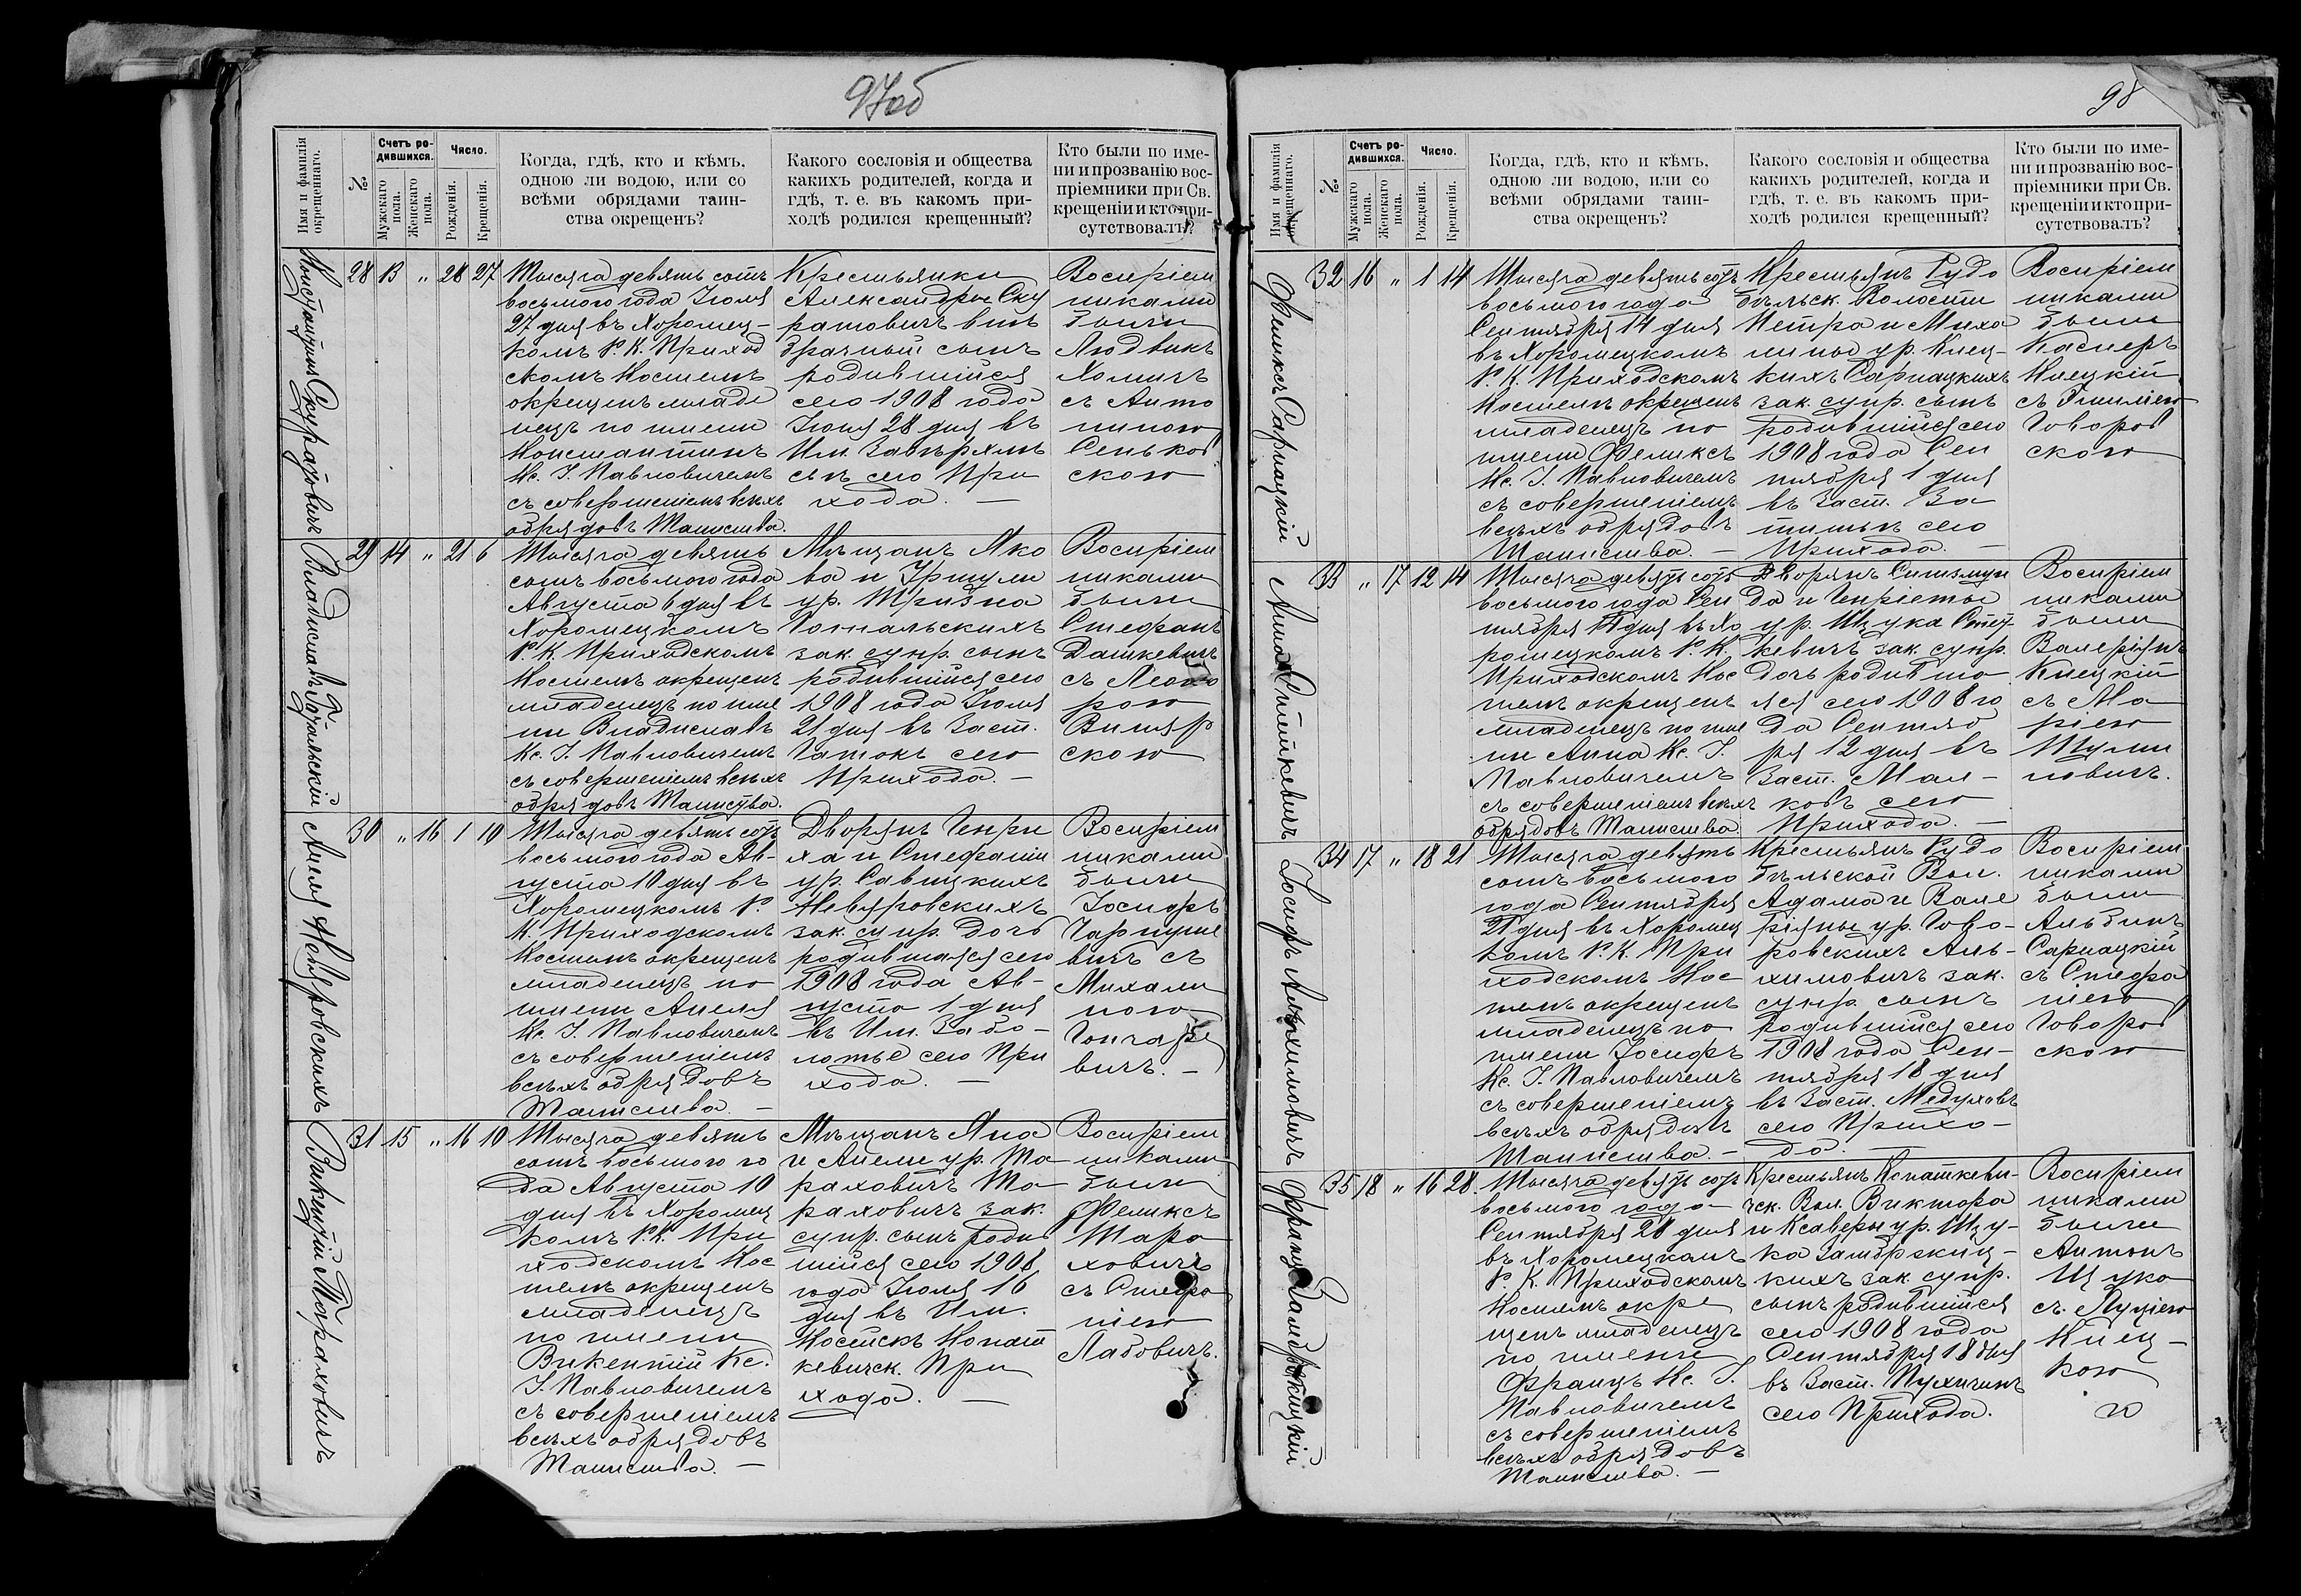 97об
Имя и фамилія окрещеннаго.
№
Счетъ ро-
дившихся.
Мужскаго пола.
Женскаго пола.
Число.
Рожденія.
Крещенія.
Когда, гдѣ, кто и кѣмъ,
одною ли водою, или со
всѣми обрядами таин-
ства окрещенъ?
Какого сословія и общества
какихъ родителей, когда и
гдѣ, т. е. въ какомъ при-
ходѣ родился крещенный?
Кто были по име-
ни и прозванію вос-
пріемники при Св.
крещеніи и кто при-
сутствовалъ?
Константинъ Скуратовичъ
28 13 " 28 27
Тысяча девять сотъ
восьмого года Іюля
27 дня въ Хоромец-
комъ Р. К. Приход
скомъ Костелѣ
окрещенъ младе
нецъ по имени
Константинъ
Кс. І. Павловичемъ
съ совершеніемъ всѣхъ
обрядовъ Таинства.
Крестьянки
Александры Ску
ратовичъ внѣ
брачный сынъ
родившійся
сего 1908 года
Іюня 28 дня въ
Им. Завѣрхлѣ
сьѣ сего При
хода. —
Воспріем
никами
были
Людвикъ
Хомичъ
съ Анто
ниною
Сеньков
скою
Владиславъ Гогальскій
29 14 " 21 6
Тысяча девять
сотъ восьмого года
Августа 6 дня въ
Хоромецкомъ
Р. К. Приходскомъ
Костелѣ окрещенъ
младенецъ по име
ни Владиславъ
Кс. І. Павловичемъ
съ совершеніемъ всѣхъ
обрядовъ Таинства.
Мѣщанъ Яко
ва и Уршули
ур. Тризна
Гогальскихъ
зак. супр. сынъ
родившійся сего
1908 года Іюля
21 дня въ Заст.
Гатокъ сего
Прихода. —
Воспріем
никами
были
Стефанъ
Дашкевичъ
съ Леоно
рою
Виляр
скою
Анеля Невяровскихъ
30 " 16 1 10
Тысяча девять сотъ
восьмого года Ав-
густа 10 дня въ
Хоромецкомъ Р.
К. Приходскомъ
Костелѣ окрещенъ
младенецъ по
имени Анеля
Кс. І. Павловичемъ
съ совершеніемъ
всѣхъ обрядовъ
Таинства. —
Дворянъ Генри
ха и Стефаніи
ур. Савицкихъ
Невяровскихъ
зак. супр. дочь
родившаяся сего
1908 года Ав-
густа 1 дня
въ Им. Забо-
лотье сего При
хода. —
Воспріем
никами
были
Іосифъ
Гарпуше
вичъ съ
Михали
ною
Гончаре
вичъ. —
Викентій Тараховичъ
31 15 " 16 10
Тысяча девять
сотъ восьмого го
да Августа 10
дня въ Хоромец
комъ Р. К. При
ходскомъ Кос
телѣ окрещенъ
младенецъ
по имени
Викентій Кс.
І. Павловичемъ
съ совершеніемъ
всѣхъ обрядовъ
Таинства. —
Мѣщанъ Яна
и Анели ур. Та
раховичъ Та-
раховичъ зак.
супр. сынъ родив
шійся сего 1908
года Іюля 16
дня въ Им.
Косейскъ Копат
кевичск. При
хода. —
Воспріем
никами
были
Феликсъ
Тара
ховичъ
съ Стефа
ніею
Лабовичъ.
98
Имя и фамилія окрещеннаго.
№
Счетъ ро-
дившихся.
Мужскаго пола.
Женскаго пола.
Число.
Рожденія.
Крещенія.
Когда, гдѣ, кто и кѣмъ,
одною ли водою, или со
всѣми обрядами таин-
ства окрещенъ?
Какого сословія и общества
какихъ родителей, когда и
гдѣ, т. е. въ какомъ при-
ходѣ родился крещенный?
Кто были по име-
ни и прозванію вос-
пріемники при Св.
крещеніи и кто при-
сутствовалъ?
Феликсъ Сарнацкій
32 16 " 1 14
Тысяча девять сотъ
восьмого года
Сентября 14 дня
въ Хоромецкомъ
Р. К. Приходскомъ
Костелѣ окрещенъ
младенецъ по
имени Феликсъ
Кс. І. Павловичемъ
съ совершеніемъ
всѣхъ обрядовъ
Таинства. —
Крестьянъ Рудо
бѣльск. Волости
Петра и Миха
лины ур. Клец-
кихъ Сарнацкихъ
зак. супр. сынъ
родившійся сего
1908 года Сен
тября 1 дня
въ Заст. За
тишьѣ сего
Прихода. —
Воспріем
никами
были
Касперъ
Клецкій
съ Эмиліею
Говоров
скою
Анна Стецкевичъ
33 " 17 12 14
Тысяча девять сотъ
восьмого года Сен
тября 14 дня въ Хо
ромецкомъ Р. К.
Приходскомъ Кос
телѣ окрещенъ
младенецъ по име
ни Анна Кс. І.
Павловичемъ
съ совершеніемъ всѣхъ
обрядовъ Таинства.
Дворянъ Сигизмун
да и Генріеты
ур. Щука Стец-
кевичъ зак. супр.
дочь родивша
яся сего 1908 го
да Сентяб
ря 12 дня въ
Заст. Мал-
ковъ сего
Прихода. —
Воспріем
никами
были
Валеріянъ
Клецкій
съ Ма
ріею
Шули
новичъ.
Іосифъ Альхимовичъ
34 17 " 18 21
Тысяча девять
сотъ восьмого
года Сентября
21 дня въ Хоромец
комъ Р. К. При
ходскомъ Кос-
телѣ окрещенъ
младенецъ по
имени Іосифъ
Кс. І. Павловичемъ
съ совершеніемъ
всѣхъ обрядовъ
Таинства. —
Крестьянъ Рудо
бѣльской Вол.
Адама и Вале
ріяны ур. Гово-
ровскихъ Аль-
химовичъ зак.
супр. сынъ
родившійся сего
1908 года Сен-
тября 18 дня
въ Заст. Медуховъ
сего Прихо-
да. —
Воспріем
никами
были
Альбинъ
Сарнацкій
съ Стефа
ніею
Говоров
скою
Францъ Замбржицкій
35 18 " 16 28.
Тысяча девять сотъ
восьмого года
Сентября 28 дня
въ Хоромецкомъ
Р. К. Приходскомъ
Костелѣ окре
щенъ младенецъ
по имени
Францъ Кс. І.
Павловичемъ
съ совершеніемъ
всѣхъ обрядовъ
Таинства. —
Крестьянъ Копаткеви-
чск. Вол. Виктора
и Ксаверы ур. Щу-
ка Замбржиц-
кихъ зак. супр.
сынъ родившійся
сего 1908 года
Сентября 18 дня
въ Заст. Пухичинъ
сего Прихода.
Воспріем
никами
были
Антонъ
Щука
съ Луціею
Клец-
кою